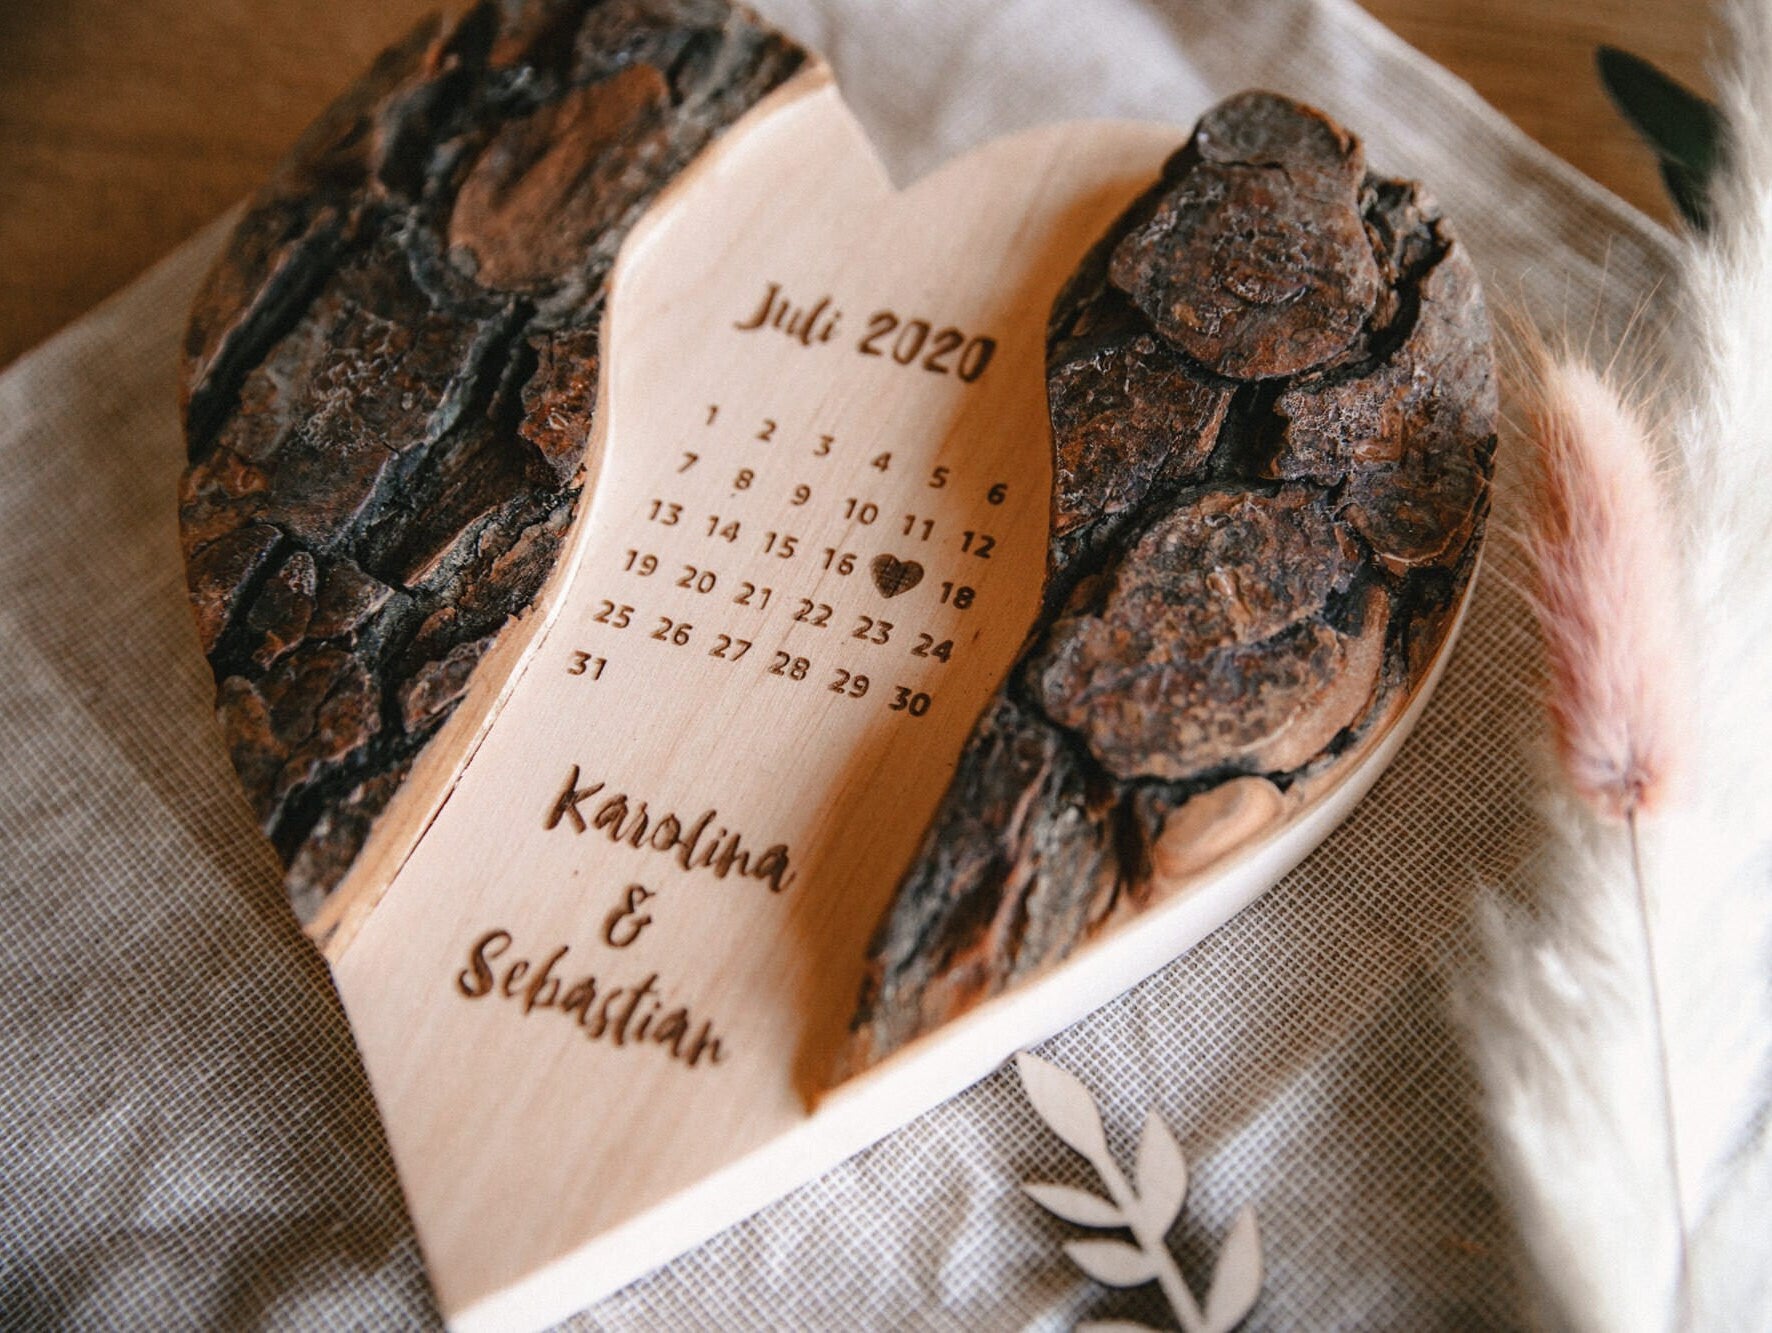 Juli 2020
1 2 3 4 5 6
7 8 9 10 11 12
13 14 15 16 18
19 20 21 22 23 24
25 26 27 28 29 30
31
Karolina
&
Sebastian